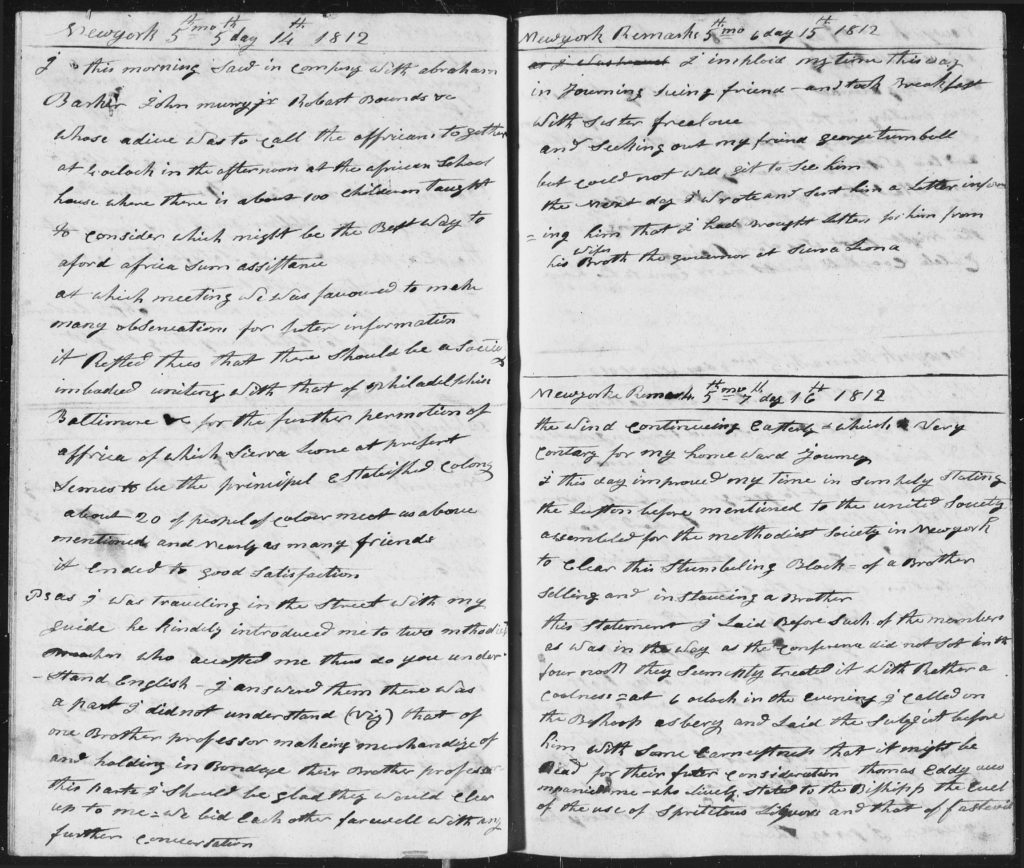 Newyork 5th mo 5th day 14th 1812
I this morning Saw in Compy with abraham
Barker John murry jr Robart Bounds &c
whose advice was to call the affricans to gether
at 4 oclock in the afternoon at the african School
house where there is about 100 Children taught
to consider which might be the Best way to
aford africa Sum assistance
at which meeting we was favoured to make
many observations for futer information
it Rested thus that there should be a Society
imbodied uniting with that of Philadelphia
Baltimore &c for the further permotion of
affrica of which Sierra Leone at present
Semes to be the principel Established Colony
about 20 of peopel of Colour meet as above
mentioned and nearly as many friends
it Ended to good Satisfaction
PS as I was traveling in the Street with my
guide he kindly introduced me to two mthodist
who accosted me thus do you under
-Stand English - I answered them there was
a part I did not understand (Viz) that of
one Brother professor makeing merchandize of
and holding in Bondage their Brother professor
this part I Should be glad they would Clear
up to me = we bid Each other farewell with any
further Conversation
Newyork Remarks 5th mo 6 day 15th 1812
I imploid my time this way
in Journing Seeing friend - and took Breakfast
with Sister freelove
and Seeking out my friend george turnbull
but could not well git to See him
the next day I wrote and Sent him a Letter inform
=ing him that I had brought letters for him from
his wifes Broth the governor at Sierra Leona
Newyorke Remark 5th mo 7th day 16th 1812
the wind Continueing Easterly & which Very
Contary for my home ward Journey
I this day improved my time in Simpely Stating
the before mentioned to the united Society
assembled for the methodies Society in Newyork
to Clear this Stumbeling Block - of a Brother
Selling and inslaveing a Brother
this Statement I Laid Before Such of the members
as was in the way as the Conference did not Set in th
four noon they Seemenly treated it with Rether a
Coolness = at 6 oclock in the Evening I Called on
the Bishoop asbery and Laid the Subject before
him with Some Earnestness that it might be
for their futer Consideration thomas Eddy accom
panied me - who lively Stated to the Bishopp the Evel
of the use of Spirituous Liquors and that of